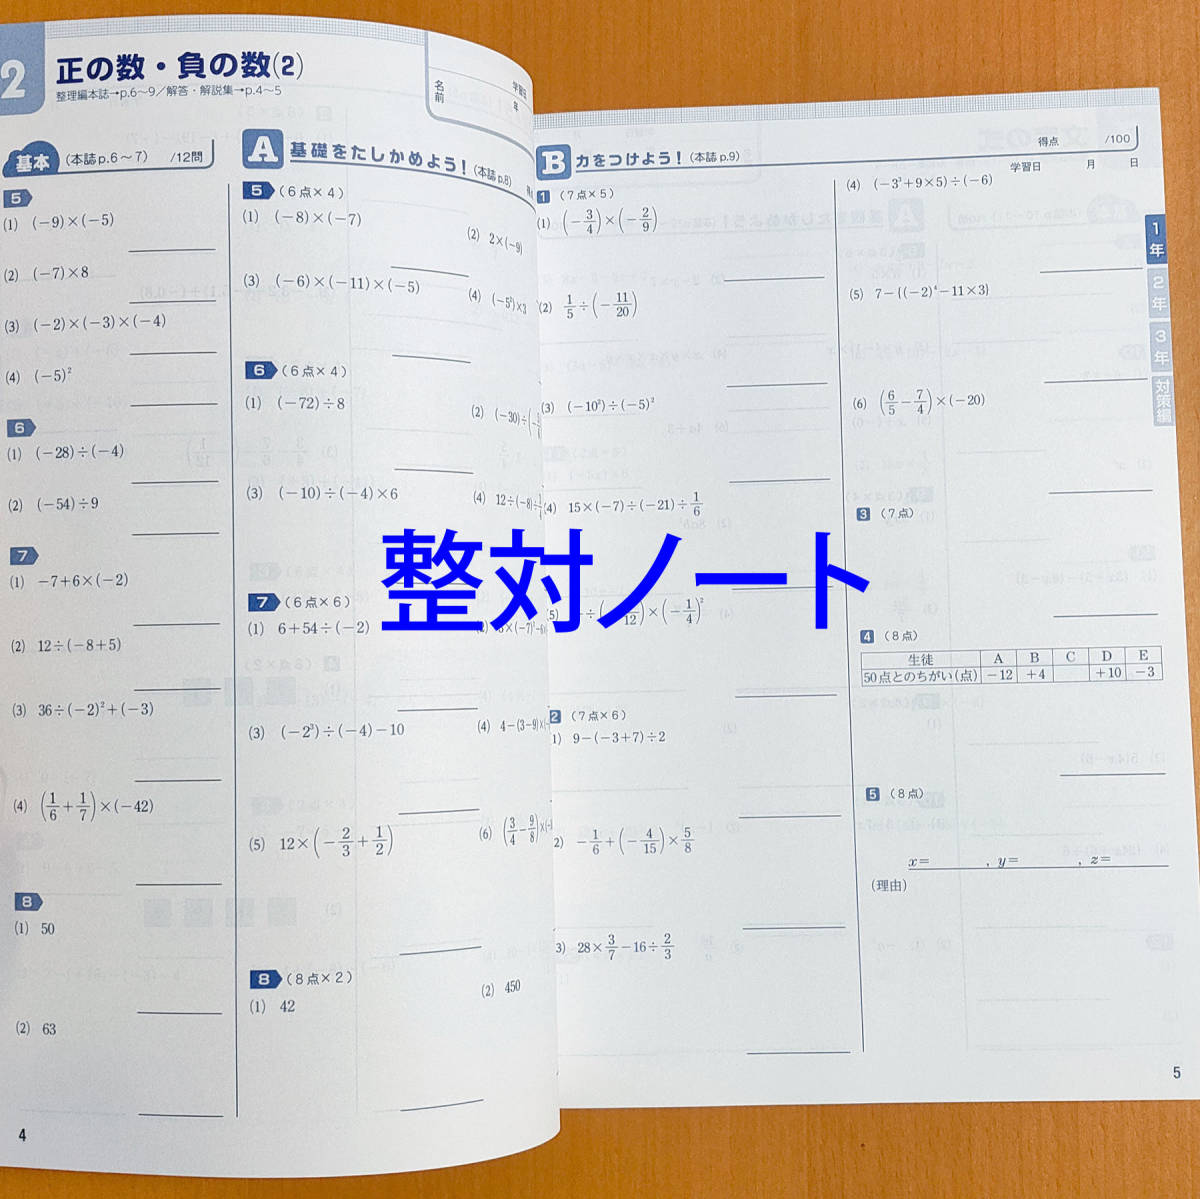 2
正の数・負の数(2)
整理編本誌→p.6～9／解答・解説集→p.4～5
学習日
年
名前
基本 (本誌p.6～7) /12問
5
(1) (−9)×(−5)
(2) (−7)×8
(3) (−2)×(−3)×(−4)
(4) (−5)²
6
(1) (−28)÷(−4)
(2) (−54)÷9
7
(1) −7+6×(−2)
(2) 12÷(−8+5)
(3) 36÷(−2)²+(−3)
(4) (1/6+1/7)×(−42)
8
(1) 50
(2) 63
4
A 基礎をたしかめよう! (本誌p.8)
5 (6点×4)
(1) (−8)×(−7)
(2) 2×(−9)
(3) (−6)×(−11)×(−5)
(4) (−5²)×3
6 (6点×4)
(1) (−72)÷8
(2) (−30)÷(−
(3) (−10)÷(−4)×6
(4) 12÷(−8)÷
7 (6点×6)
(1) 6+54÷(−2)
(3) (−2³)÷(−4)−10
(4) 4−(3−9)×(
(5) 12×(−2/3+1/2)
(6) (3/4−9/8)×(
8 (8点×2)
(1) 42
(2) 450
B 力をつけよう! (本誌p.9)
得点 /100
学習日 月 日
1 (7点×5)
(1) (−3/4)×(−2/9)
(2) 1/5÷(−11/20)
(3) (−10²)÷(−5)²
(4) 15×(−7)÷(−21)÷1/6
5) ÷( /12)×(−1/4)²
2 (7点×6)
1) 9−(−3+7)÷2
2) −1/6+(−4/15)×5/8
3) 28×3/7−16÷2/3
(4) (−3³+9×5)÷(−6)
(5) 7−{(−2)⁴−11×3}
(6) (6/5−7/4)×(−20)
3 (7点)
4 (8点)
生徒 A B C D E
50点とのちがい(点) −12 +4 +10 −3
5 (8点)
x= , y= , z=
(理由)
1年
2年
3年
対策編
5
整対ノート